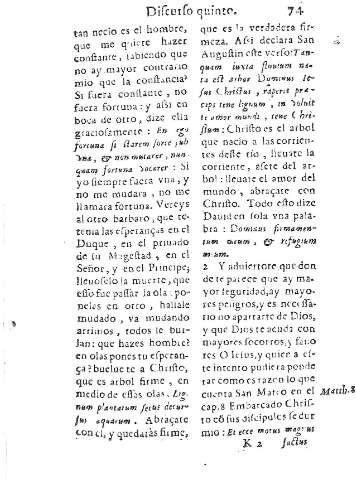 Discurso quinto. 74
tan necio es el hombre,
que me quiere hazer
constante, sabiendo que
no ay mayor contrario
mio que la constancia?
Si fuera constante, no
fuera fortuna: y assi en
boca de otro, dize ella
graciosamente: En ego
fortuna si starem sorte sub
vna, & non mutarer, nun-
quam fortuna vocarer: Si
yo siempre fuera vna, y
no me mudara, no me
llamara fortuna. Vereys
al otro barbaro, que te-
tenia las esperanças en el
Duque, en el priuado
de su Magestad, en el
Señor, y en el Principe;
lleuoselo la muerte, que
esso fue passar la ola: po-
neles en otro, hallale
mudado, va mudando
arrimos, todos le bur-
lan: que hazes hombre?
en olas pones tu esperan-
ça? buelue te a Christo,
que es arbol firme, en
medio de essas olas. Lig-
num plantatum secus decur-
sus aquarum. Abraçate
con el, y quedaràs firme,
que es la verdadera fir-
meza. Assi declara San
Augustin este verso: Tan-
quam iuxta fluuium na-
ta est arbor Dominus Ie-
sus Christus, raperit præ-
ceps tene lignum, in voluit
te amor mundi, tene Chri-
stum: Christo es el arbol
que nacio a las corrien-
tes deste rio, lleuate la
corriente, asete del ar-
bol: lleuate el amor del
mundo, abraçate con
Christo. Todo esto dize
Dauid en sola vna pala-
bra: Dominus firmamen-
tum meum, & refugium
meum.
2 Y aduierto te que don
de te parece que ay ma-
yor seguridad, ay mayo-
res peligros, y es necessa-
rio no apartarte de Dios,
y que Dios te acuda con
mayores socorros, y fauo
res O Iesus, y quien a es-
te intento pudiera ponde
rar como es razon lo que
cuenta San Mateo en el Matth.8
cap.8 Embarcado Chris-
to cõ sus discipulos se dur
mio: Et ecce motus magnus
K 2 factus